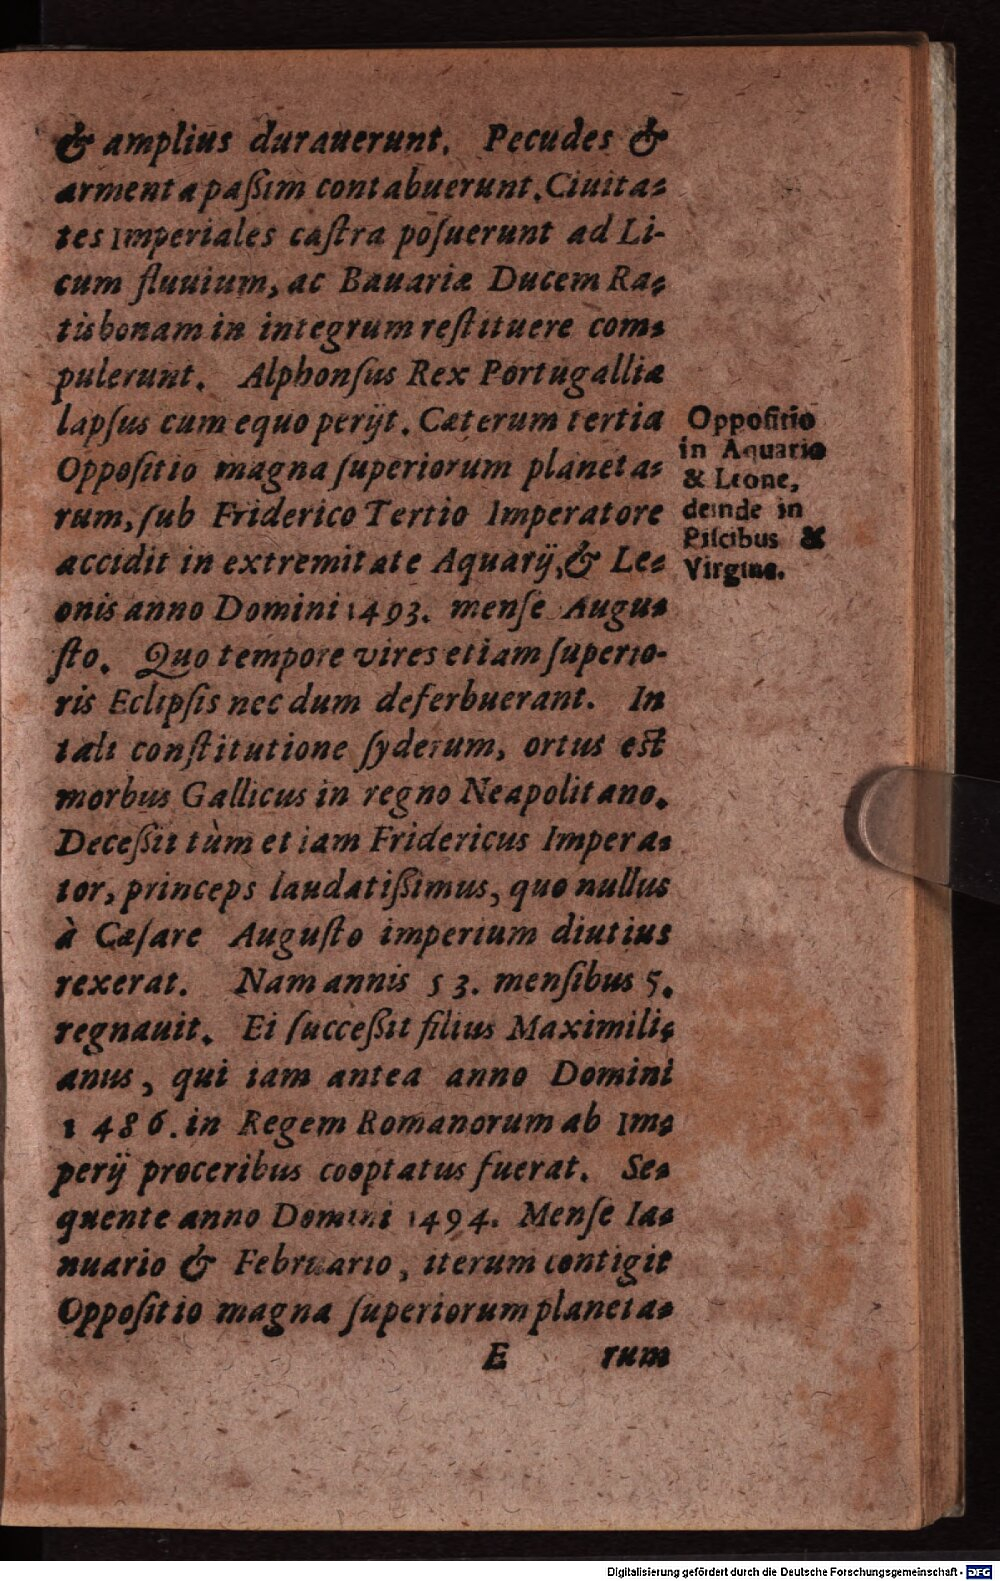 & amplius durauerunt. Pecudes &
armenta paßim contabuerunt. Ciuita=
tes Imperiales caſtra poſuerunt ad Li-
cum fluuium, ac Bauariæ Ducem Ra=
tisbonam in integrum reſtituere com=
pulerunt. Alphonſus Rex Portugalliæ
lapſus cum equo perijt. Cæterum tertia
Oppoſitio magna ſuperiorum planeta=
rum, ſub Friderico Tertio Imperatore
accidit in extremitate Aquarij, & Le=
onis anno Domini 1493. menſe Augu=
ſto. Quo tempore vires etiam ſuperio-
ris Eclipſis nec dum deferbuerant. In
tali conſtitutione ſyderum, ortus eſt
morbus Gallicus in regno Neapolitano.
Deceßit tùm etiam Fridericus Impera=
tor, princeps laudatißimus, quo nullus
à Cæſare Auguſto imperium diutius
rexerat. Nam annis 53. menſibus 5.
regnauit. Ei ſucceßit filius Maximili=
anus, qui iam antea anno Domini
1486. in Regem Romanorum ab Im=
perij proceribus cooptatus fuerat. Se=
quente anno Domini 1494. Menſe Ia=
nuario & Februario, iterum contigit
Oppoſitio magna ſuperiorum planeta=
E rum
Oppoſitio
in Aquario
& Leone,
deinde in
Piſcibus &
Virgine.
Digitalisierung gefördert durch die Deutsche Forschungsgemeinschaft - DFG